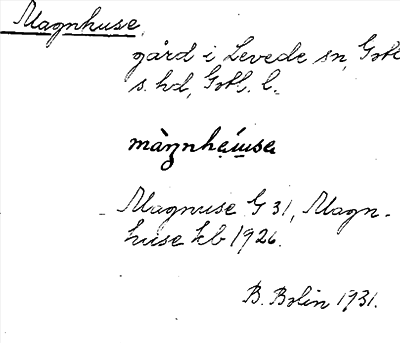 Magnhuse,
gård i Levede sn, Gotl.
s. hd, Gotl. l.
Magnuse G 31, Magn-
huse kb 1926.
B. Bolin 1931.